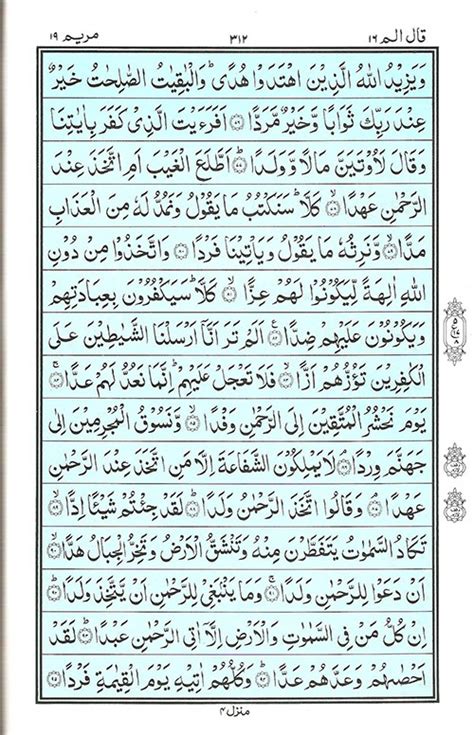 قال الم ١٦ ٣١٢ مريم ١٩
وَيَزِيْدُ اللّٰهُ الَّذِيْنَ اهْتَدَوْا هُدًى ؕ وَالْبٰقِيٰتُ الصّٰلِحٰتُ خَيْرٌ
عِنْدَ رَبِّكَ ثَوَابًا وَّخَيْرٌ مَّرَدًّا ۝ اَفَرَءَيْتَ الَّذِيْ كَفَرَ بِاٰيٰتِنَا
وَقَالَ لَاُوْتَيَنَّ مَالًا وَّوَلَدًا ۝ اَطَّلَعَ الْغَيْبَ اَمِ اتَّخَذَ عِنْدَ
الرَّحْمٰنِ عَهْدًا ۝ كَلَّا ؕ سَنَكْتُبُ مَا يَقُوْلُ وَنَمُدُّ لَهٗ مِنَ الْعَذَابِ
مَدًّا ۝ وَّنَرِثُهٗ مَا يَقُوْلُ وَيَاْتِيْنَا فَرْدًا ۝ وَاتَّخَذُوْا مِنْ دُوْنِ
اللّٰهِ اٰلِهَةً لِّيَكُوْنُوْا لَهُمْ عِزًّا ۝ كَلَّا ؕ سَيَكْفُرُوْنَ بِعِبَادَتِهِمْ
وَيَكُوْنُوْنَ عَلَيْهِمْ ضِدًّا ۝ اَلَمْ تَرَ اَنَّآ اَرْسَلْنَا الشَّيٰطِيْنَ عَلَى
الْكٰفِرِيْنَ تَؤُزُّهُمْ اَزًّا ۝ فَلَا تَعْجَلْ عَلَيْهِمْ ؕ اِنَّمَا نَعُدُّ لَهُمْ عَدًّا ۝
يَوْمَ نَحْشُرُ الْمُتَّقِيْنَ اِلَى الرَّحْمٰنِ وَفْدًا ۝ وَّنَسُوْقُ الْمُجْرِمِيْنَ اِلٰى
جَهَنَّمَ وِرْدًا ۝ لَا يَمْلِكُوْنَ الشَّفَاعَةَ اِلَّا مَنِ اتَّخَذَ عِنْدَ الرَّحْمٰنِ
عَهْدًا ۝ وَقَالُوا اتَّخَذَ الرَّحْمٰنُ وَلَدًا ۝ لَقَدْ جِئْتُمْ شَيْـًٔا اِدًّا ۝
تَكَادُ السَّمٰوٰتُ يَتَفَطَّرْنَ مِنْهُ وَتَنْشَقُّ الْاَرْضُ وَتَخِرُّ الْجِبَالُ هَدًّا ۝
اَنْ دَعَوْا لِلرَّحْمٰنِ وَلَدًا ۝ وَمَا يَنْۢبَغِيْ لِلرَّحْمٰنِ اَنْ يَّتَّخِذَ وَلَدًا ۝
اِنْ كُلُّ مَنْ فِي السَّمٰوٰتِ وَالْاَرْضِ اِلَّآ اٰتِي الرَّحْمٰنِ عَبْدًا ۝ لَقَدْ
اَحْصٰىهُمْ وَعَدَّهُمْ عَدًّا ۝ وَكُلُّهُمْ اٰتِيْهِ يَوْمَ الْقِيٰمَةِ فَرْدًا ۝
منزل ٤